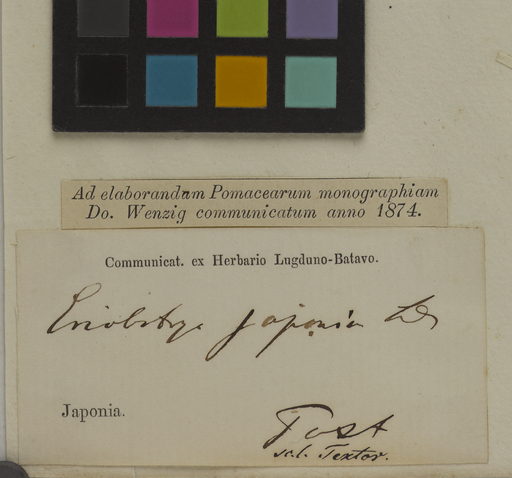 Ad elaborandum Pomacearum monographiam
Do. Wenzig communicatum anno 1874.
Communicat. ex Herbario Lugduno-Batavo.
Eriobotrya japonica
Japonia.
Textor.